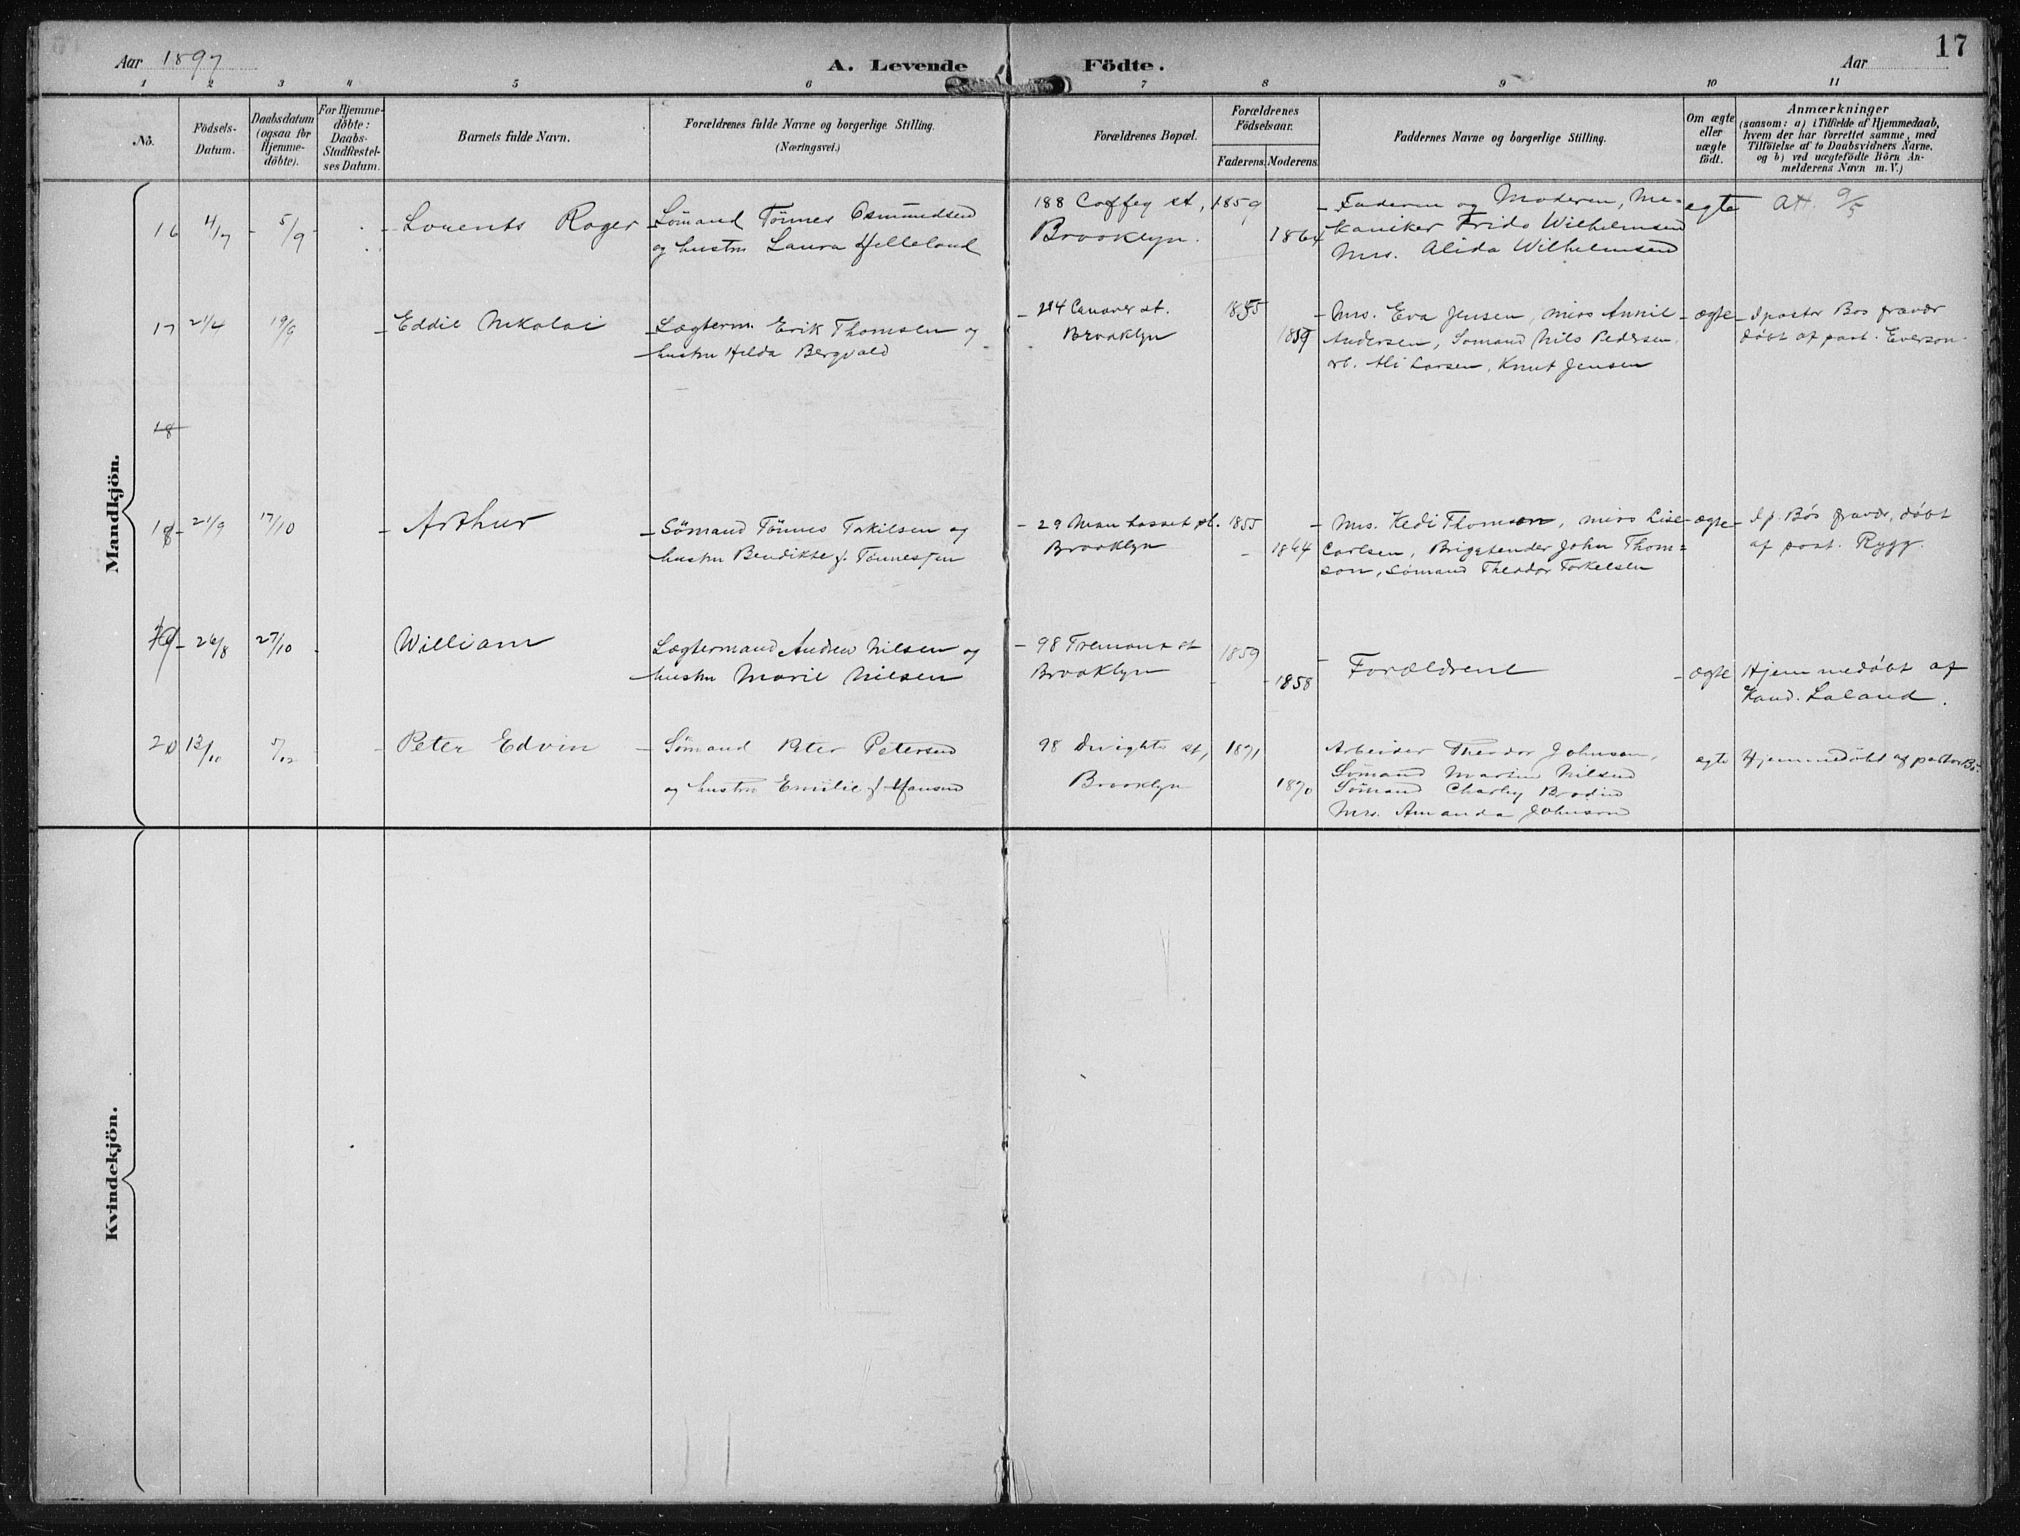 Aar 1897
A. Levende Födte.
Aar
17
1 2 3 4 5 6 7 8 9 10 11
No.
Födsels-Datum.
Daabsdatum (ogsaa for Hjemme-döbte).
For Hjemme-döbte: Daabs-Stadfæstel-ses Datum.
Barnets fulde Navn.
Forældrenes fulde Navne og borgerlige Stilling.
(Næringsvei.)
Forældrenes Bopæl.
Forældrenes Födselsaar.
Faderens. Moderens.
Faddernes Navne og borgerlige Stilling.
Om ægte eller uægte födt.
Anmærkninger
(saasom: a) i Tilfælde af Hjemmedaab,
hvem der har forrettet samme, med
Tilföielse af to Daabsvidners Navne,
og b) ved uægtefödte Börn An-
melderens Navn m. V.)
Mandkjön.
16 4/7 - 5/9 - Lorents Roger
Sömand Tönnes Osmundsen
og hustru Laura Helleland
188 Coffey st,
Brooklyn.
1859
1864
- Faderen og Moderen, Me-
kaniker Frido Wilhelmsen
Mrs. Alida Wilhelmsen
egte
Att. 9/5
17 21/4 19/9 - Eddie Nikolai
- Lægterm. Erik Thomsen og
hustru Hilda Bergvald
- 214 Conover st.
Brooklyn
1855
1859
- Mrs. Eva Jensen, miss Annie
Andersen, Sömand Nils Pedersen
arb. Ali Larsen, Knut Jensen
- ægte
- I pastor Bos fravær
döbt af past. Everson.
18
18 - 21/9 17/10 - Arthur
- Sömand Tönnes Torkilsen og
hustru Bendikte f. Tönnessen
- 29 Manhasset pl.
Brooklyn
1855
- 1864
- Mrs. Hedi Thomson, miss Lise
Carlsen, Brigetender John Thom-
son, sömand Theodor Torkelsen
- ægte
- I p. Bös fravær, döbt
af past. Rygg.
19 - 26/8 27/10 - William
Lægtermand Andrew Nilsen og
hustru Marie Nilsen
- 98 Tremont st
Brooklyn
1859
- 1858
- Forældrene
- ægte
Hjemmedöbt af
Kand. Laland.
20 13/10 5/12 - Peter Edvin
- Sömand Peter Petersen
og hustru Emilie f. Hansen
98 Dwights st,
Brooklyn
1871
1870
Arbeider Theodor Johnson,
Sömand Martin Nilsen
Sömand Charley Brodin
Mrs. Amanda Johnson
egte
Hjemmedöbt af pastor Bö.
Kvindekjön.